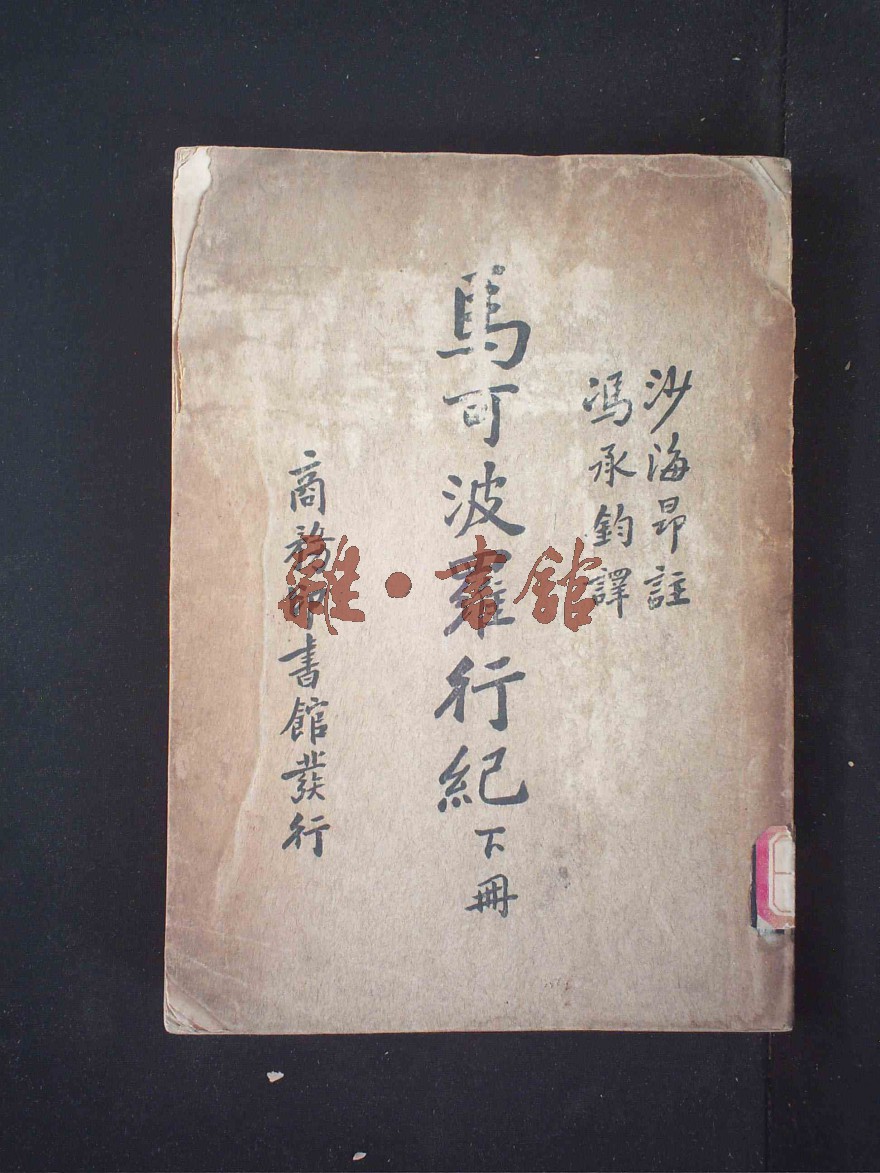 沙海昂註
馮承鈞譯
馬可波羅行紀下冊
商務印書館發行
雜·書館